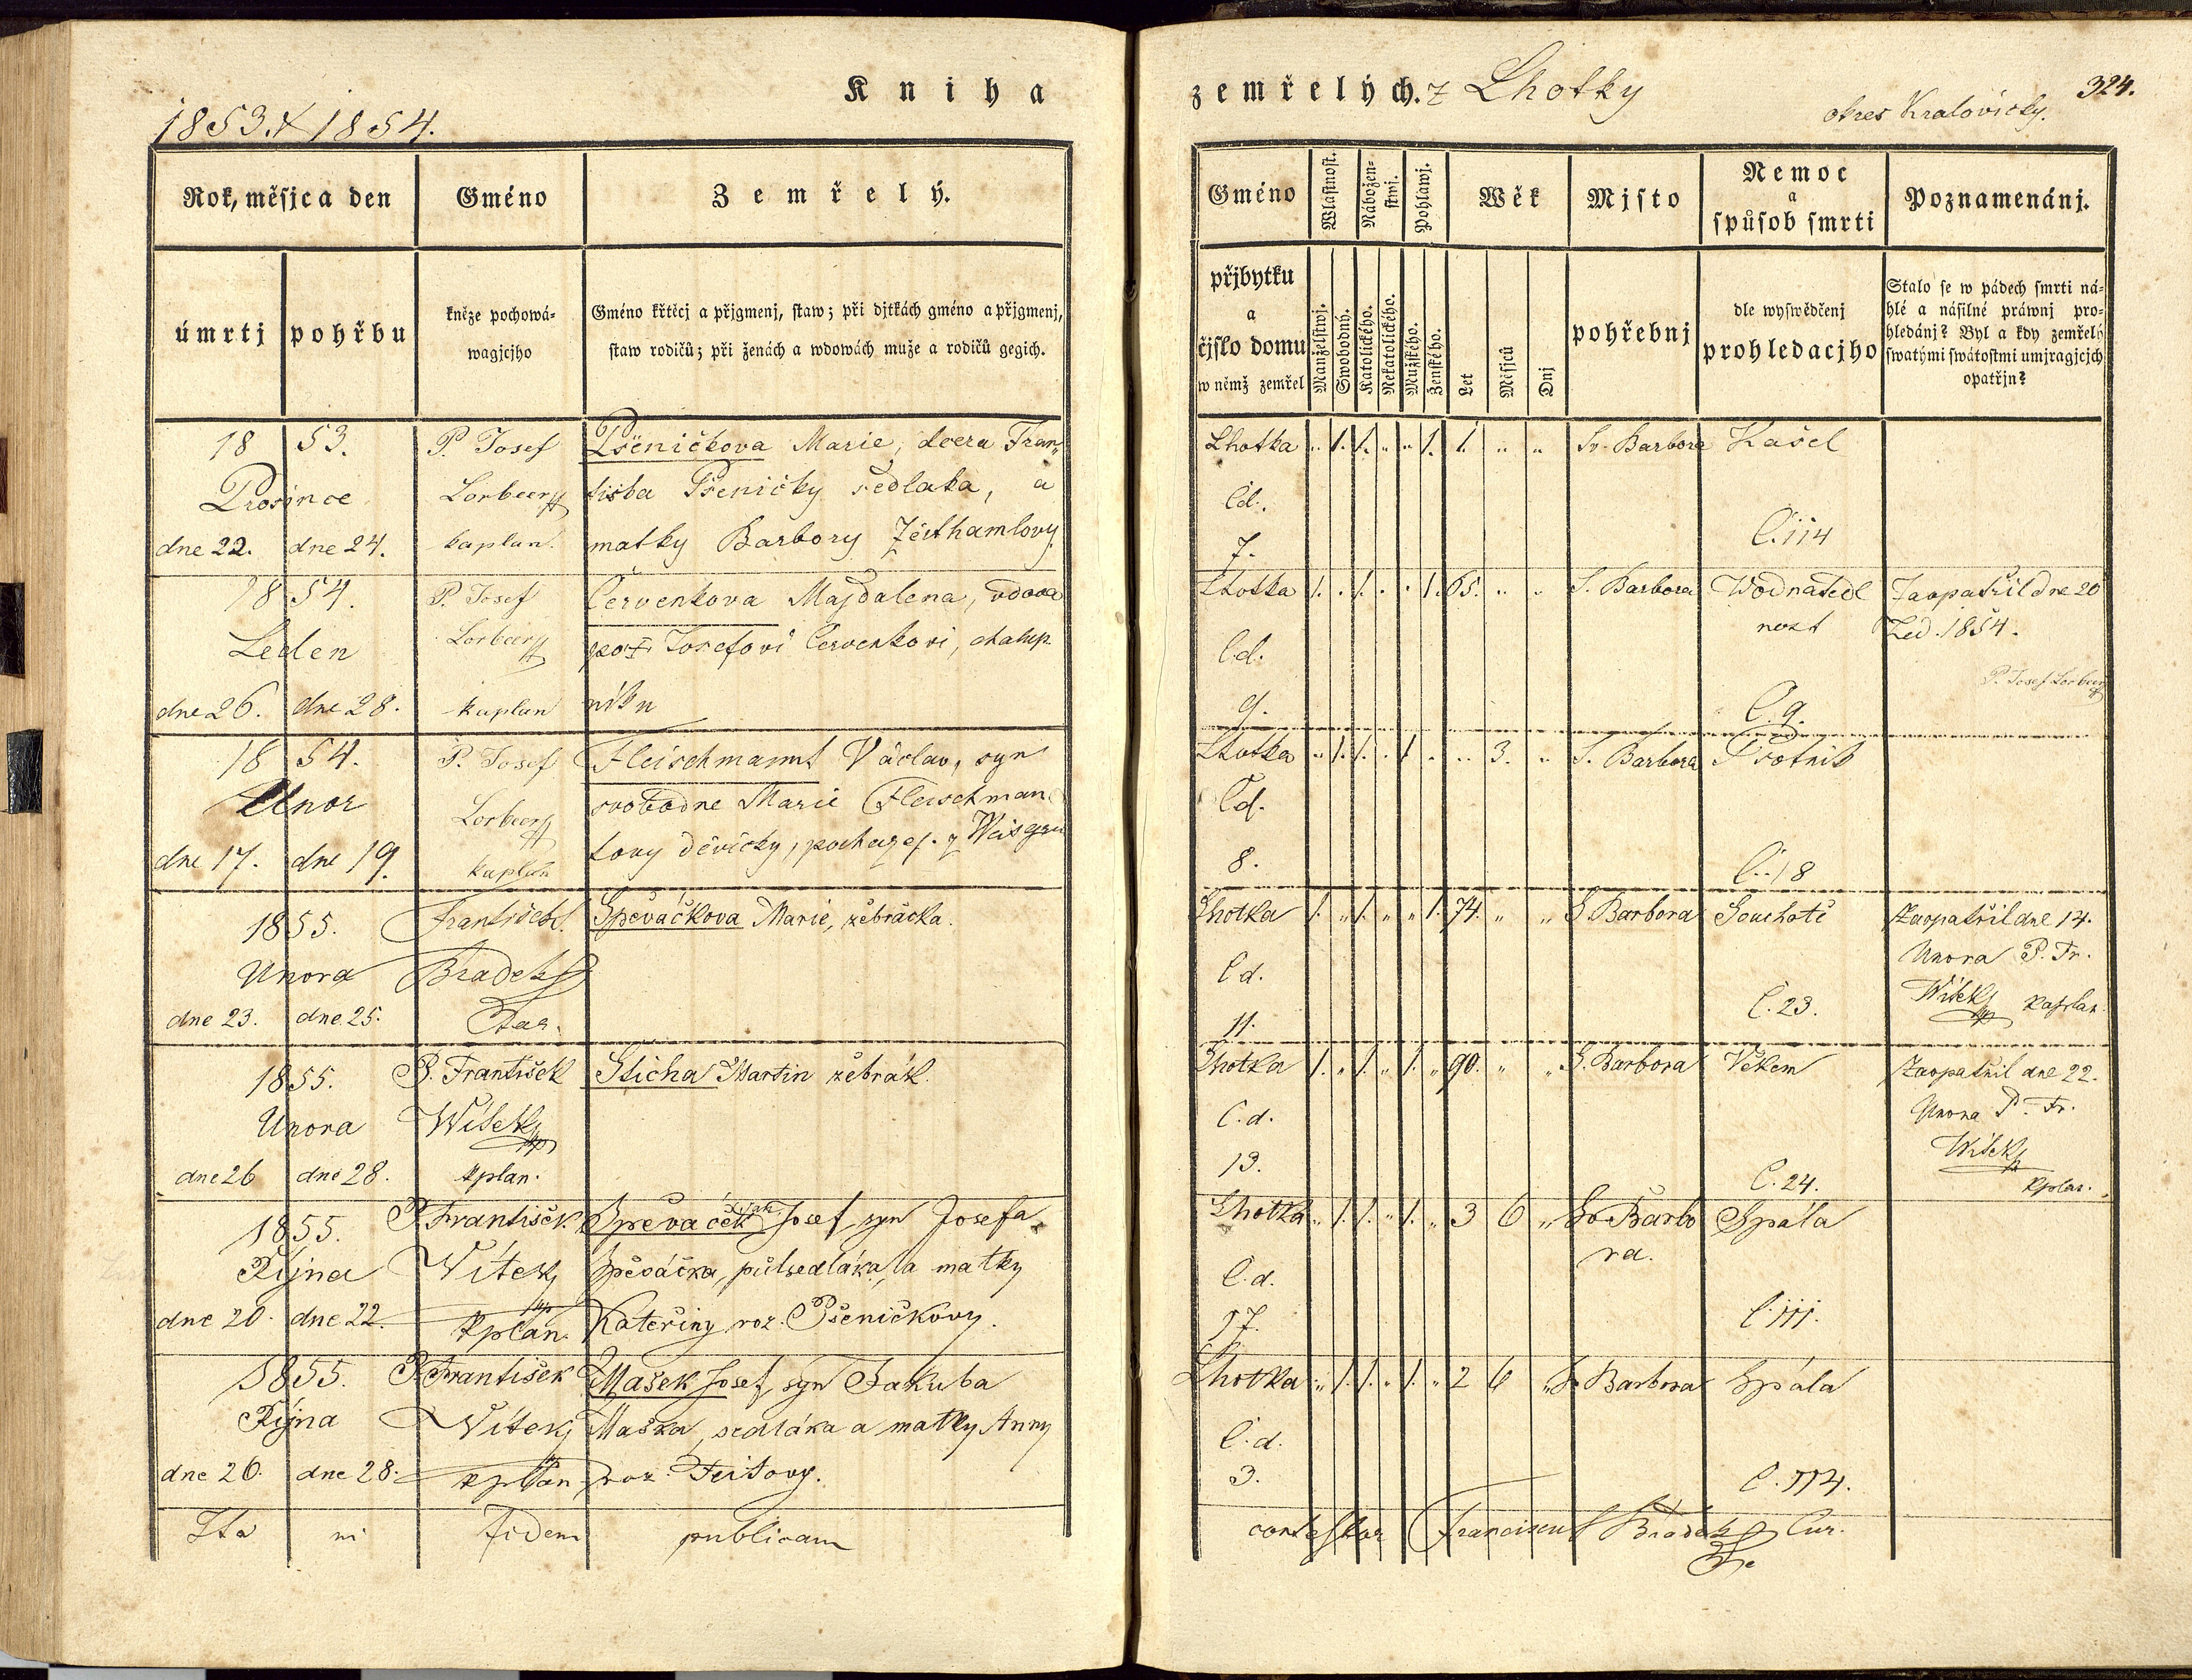 Kniha
1853. & 1854.
Rok, měsjca den
Gméno
Zemřelý.
úmrtj
pohřbu
kněze pochowá-
wagjcjho
Gméno křtěcj a přjgmenj, staw; při djtkách gméno a přjgmenj,
staw rodičů; při ženách a wdowách muže a rodičů gegich.
18 53.
Prosince
dne 22. dne 24.
P. Josef
Lorbeer
kaplan.
Pšeničkova Marie, dcera Fran
tiska Pšeničky sedlaka, a
matky Barbory
18 54.
Leden
dne 26. dne 28.
P. Josef
Lorbeer
kaplan
Červenkova Majdalena, vdova
po Josefovi Červenkovi, chalup
níku
18 54.
Unor
dne 17. dne 19.
P. Josef
Lorbeer
kaplan
Fleischmannt Václav, syn
svobodne Marie Fleischman
tovy děvičky, z
1855.
Unora
dne 23. dne 25.
František
Bradek
Špěváčkova Marie, žebrácka.
1855.
Unora
dne 26 dne 28.
P. František
Witek
kplan.
Sticha Martin žebrák.
1855.
Října
dne 20. dne 22.
P. František
Witek
kplan.
Špěváček Josef, syn Josefa
Špěváčka, půlsedláka, a matky
Kateřiny roz. Pšeničkovy.
1855.
Října
dne 26. dne 28.
P. František
Witek
kplan
Mašek Josef, syn Jakuba
Maška, sedláka a matky Anny
roz. Feitovy.
Ita in fidem publicam
zemřelých. z Lhotky
okres Kralovicky.
324.
Gméno
Wlastnost.
Nábožen-
stwj.
Pohlawj.
Wěk
Mjsto
Nemoc
a
spůsob smrti
Poznamenánj.
přjbytku
a
čjslo domu
w němž zemřel
Manželstwj.
Swobodný.
Katolického.
Nekatolického.
Mužského.
Ženského.
Let
Měsjců
Dnj
pohřebnj
dle wyswědčenj
prohledacjho
Stalo se w pádech smrti ná-
hlé a násilné práwnj pro-
hledánj? Byl a kdy zemřelý
swatými swátostmi umjragjcjch
opatřjn?
Lhotka „ 1. 1. „ „ 1. 1. „ „ Sv. Barbora Kašel
Čd.
7.
Č. 114
Lhotka 1. „ 1. „ „ 1. 65. „ „ S. Barbora Wodnatedl
nost
Zaopatřil dne 20
Led. 1854.
P. Josef Lorbeer
Č.d.
9.
Č. 9.
Lhotka „ 1. 1. „ 1 „ „ 3. „ S. Barbora Psotnik
Čd.
8.
Č. 18
Lhotka 1. „ 1. „ „ 1. 74. „ „ S. Barbora Souchotě
Zaopatřil dne 14.
Unora P. Fr.
Witek kaplan.
Č d.
11.
Č. 23.
Lhotka 1. „ 1. „ 1. „ 90. „ „ S. Barbora Věkem
Zaopatřil dne 22.
Unora P. Fr.
Witek
kplan.
Č.d.
13.
Č. 24.
Lhotka „ 1. 1. „ 1. „ 3 6 „ Sv Barbo
ra.
Spála
Č.d.
17.
Č. 111.
Lhotka „ 1. 1. „ 1. „ 2 6 „ S. Barbora Spála
Č.d.
3.
Č. 114.
contestor Franciscus Bradek Cur.